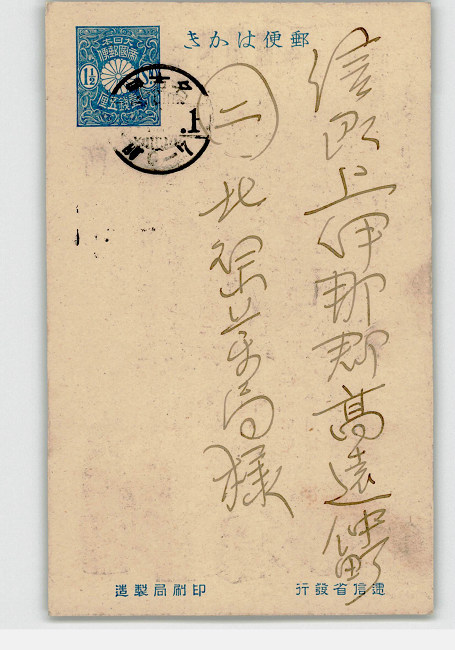 郵便はかき
大日本
帝國郵便
1½
壹錢五厘
.1
信州上伊那郡高遠仲町
二
北原薬局様
遞信省發行
印刷局製造